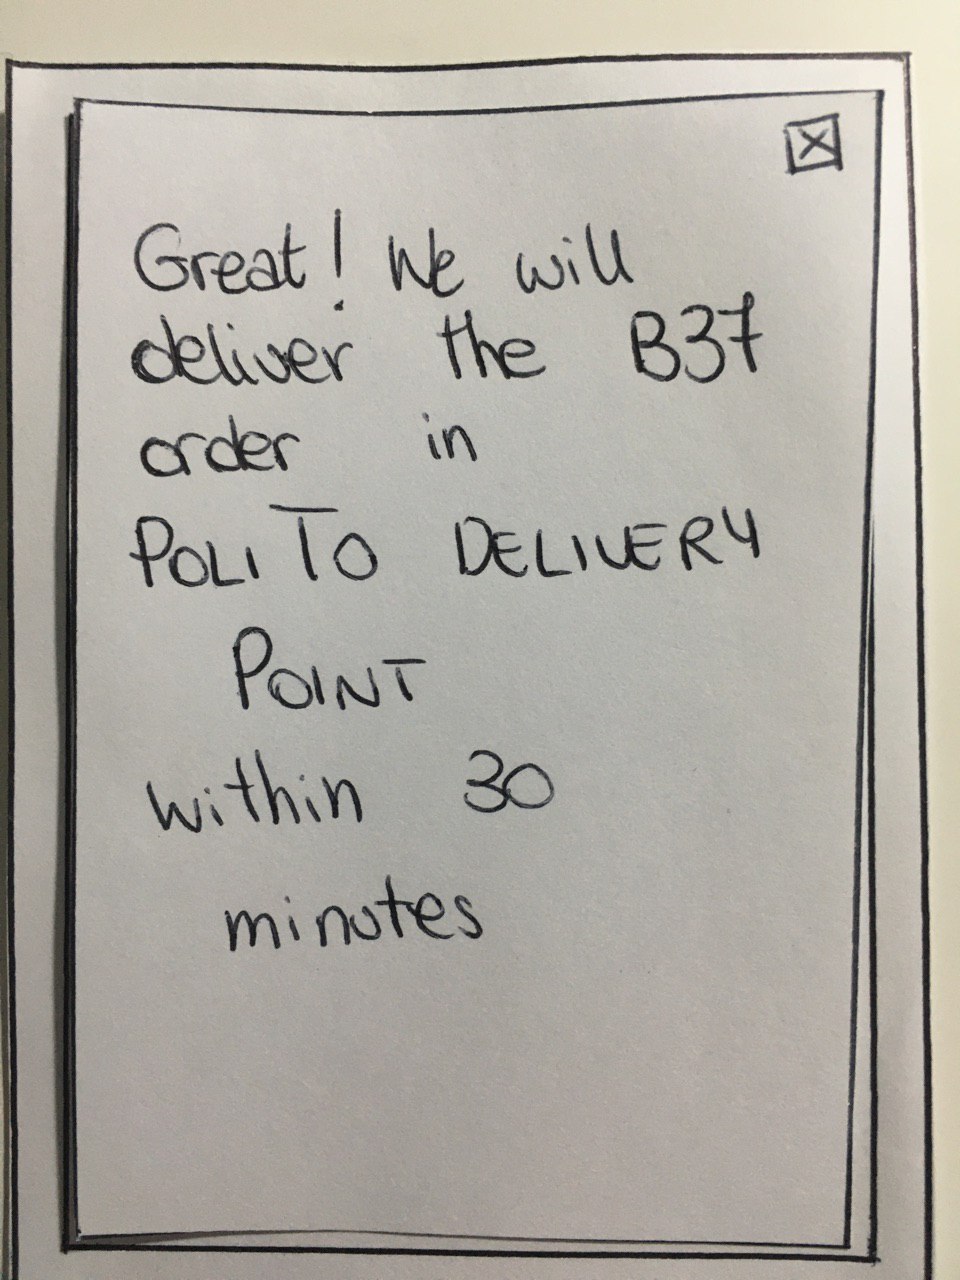 Great! We will
deliver the B37
order in
POLITO DELIVERY
POINT
within 30
minutes